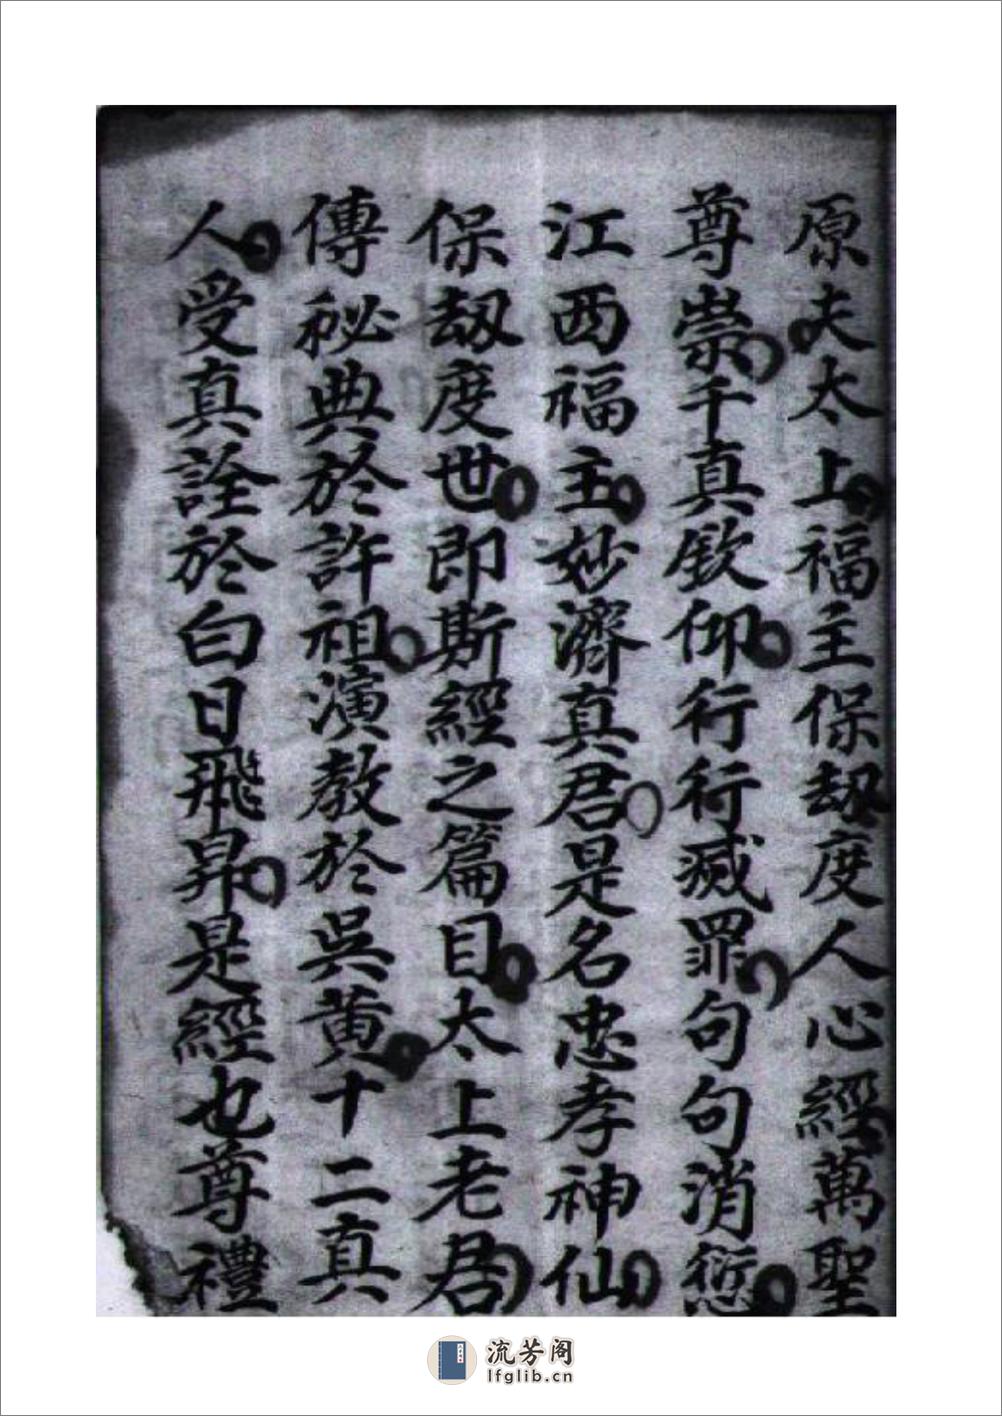 原夫太上福主保刼度人心經萬聖
尊崇千真欽仰行行滅罪句句消愆
江西福主妙濟真君是名忠孝神仙
保刼度世即斯經之篇目太上老君
傳秘典於許祖演教於吳黄十二真
人受真詮於白日飛昇是經也尊禮
流芳阁
lfglib.cn